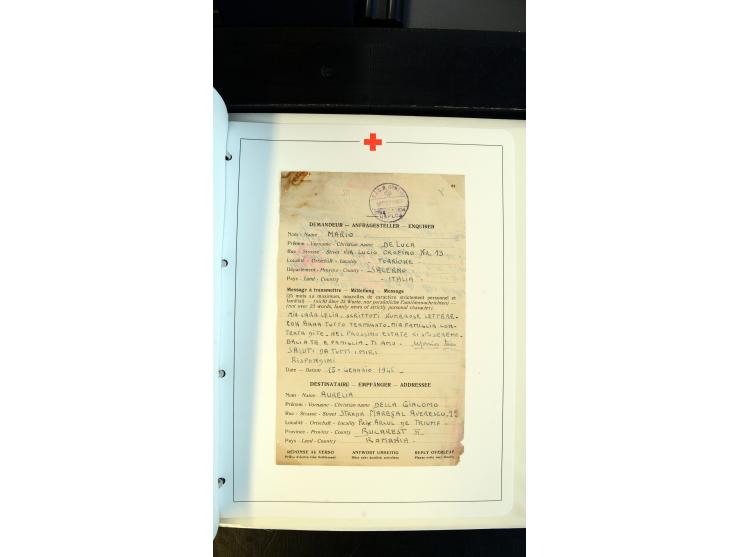 61
DEMANDEUR — ANFRAGESTELLER — ENQUIRER
Nom - Name MARIO
Prénom - Vorname - Christian name DE LUCA
Rue - Strasse - Street VIA LUCIO OROFINO NR. 13
Localité - Ortschaft - Locality TORRIONE
Département - Provinz - County SALERNO
Pays - Land - Country ITALIA
Message à transmettre — Mitteilung — Message
(25 mots au maximum, nouvelles de caractère strictement personnel et
familial) — (nicht über 25 Worte, nur persönliche Familiennachrichten) —
(not over 25 words, family news of strictly personal character)
MIA CARA LELIA, SCRITTOTI NUMEROSE LETTERE -
CON ANNA TUTTO TERMINATO - MIA FAMIGLIA CON-
TENTA DI TE - NEL PROSSIMO ESTATE CI SPOSEREMO -
BACI A TE E FAMIGLIA - TI AMO -
SALUTI DA TUTTI I MIEI
RISPONDIMI
Date — Datum 15 - GENNAIO 1945
DESTINATAIRE — EMPFÄNGER — ADDRESSEE
Nom - Name AURELIA
Prénom - Vorname - Christian name DELLA GIACOMO
Rue - Strasse - Street STRADA MAREȘAL AVERESCO, 15
Localité - Ortschaft - Locality ARCUL DE TRIUMF
Province - Provinz - County BUCAREST II
Pays - Land - Country ROMANIA
RÉPONSE AU VERSO ANTWORT UMSEITIG REPLY OVERLEAF
Prière d'écrire très lisiblement Bitte sehr deutlich schreiben Please write very clearly